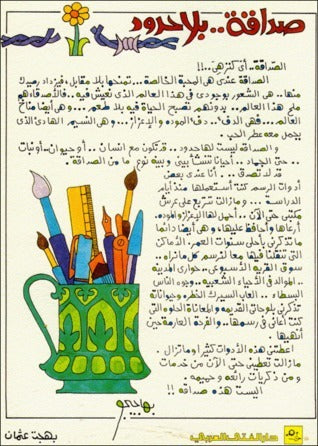 صداقة.. بلا حدود
الصداقة.. أى كنز هى..!!
الصداقة عندى هى المحبة الخالصة ... تمنحها بلا مقابل، فيزداد رصيدك
منها.. هى الشعور بوجودى فى هذا العالم الذى نعيش فيه.. فالأصدقاء هم
ملح هذا العالم... بدونهم تصبح الحياة فيه بلا طعم... وهى أيضا مناخ
العالم... فهى الدفء.. دفء المودة والإعزاز... وهى النسيم الهادئ الذى
يحمل معه عطر الحب.
والصداقة ليست لها حدود.. قد تكون مع إنسان.. أو حيوان.. أو نبات
.. حتى الجماد.. أحيانا تنشأ بينى وبينه نوع ما من الصداقة.
قد لا تصدق... أنا عندى بعض
أدوات الرسم كنت أستعملها منذ أيام
الدراسة... ومازالت تتربع على عرش
مكتبى حتى الآن.. أحمل لها الإعزاز والمودة.
أرعاها وأحافظ عليها، وهى أيضا دائما
ما تذكرنى بأحلى سنوات العمر. الأماكن
التى تنقلنا فيها معا لنرسم كل ما نراه..
سوق القرية الأسبوعى.. حوارى المدينة
.. الموالد فى الأحياء الشعبية.. وجوه الناس
البسطاء.. ألعاب السيرك الخطر وحيواناته
تذكرنى بلوحاتى القديمة والمعاناة الحلوة التى
كنت أعانى فى رسمها.. والفرحة العارمة حين
أنهيها.
أعطتنى هذه الأدوات كثيرا ومازال
مازالت تعطينى حتى الآن من خدمات
ومن ذكريات رائعة وحميمة.
أليست هذه صداقة!!
بهاجيجو
دار الفتى العربى
بهجت عثمان